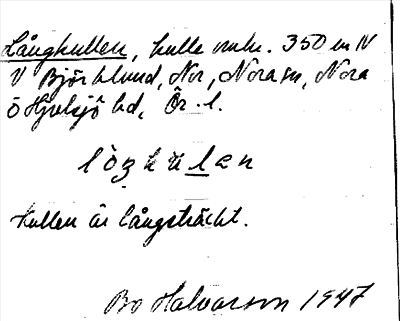 Långkullen, kulle omkr. 350 m N
V Björklund, Nor, Nora sn, Nora
o Hjulsjö hd, Ör. l.
lòŋkùlen
Kullen är långsträckt.
Bo Halvarson 1947